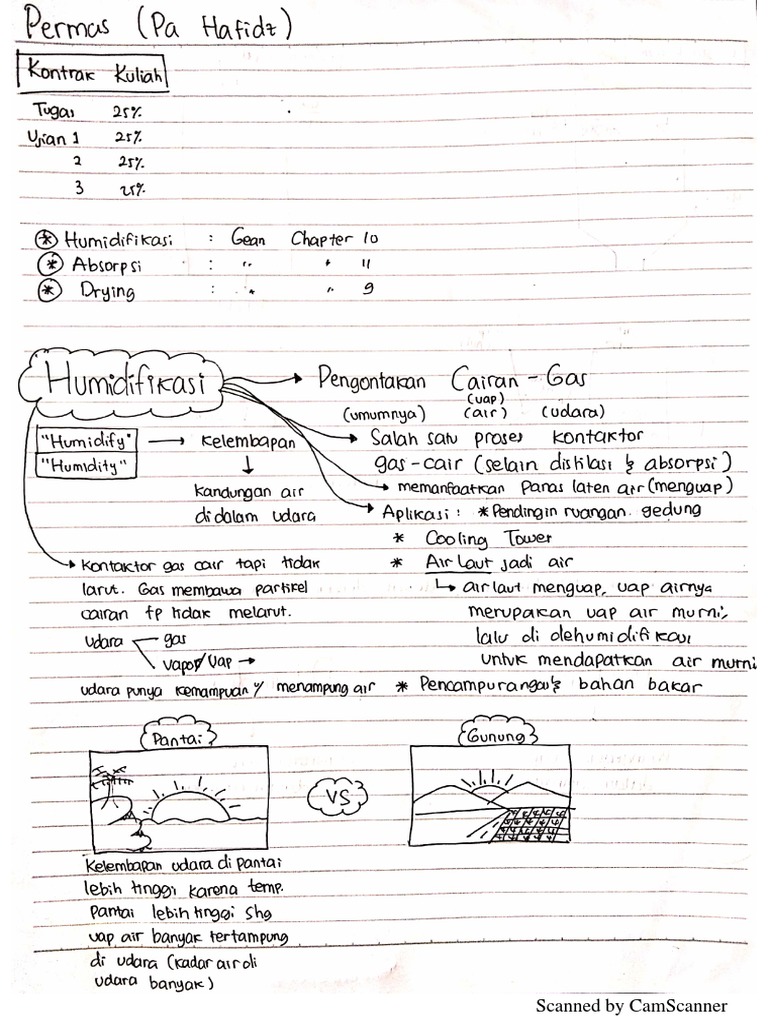 Permas (Pa Hafidz)
Kontrak Kuliah
Tugas 25%
Ujian 1 25%
2 25%
3 25%
* Humidifikasi : Gean Chapter 10
* Absorpsi : " " 11
* Drying : " " 9
Humidifikasi
Pengontakan Cairan - Gas
(uap)
(umumnya) (air) (udara)
Salah satu proses kontaktor
gas-cair (selain distilasi & absorpsi)
memanfaatkan panas laten air (menguap)
Aplikasi : * Pendingin ruangan. gedung
* Cooling Tower
* Air Laut jadi air
↳ air laut menguap, uap airnya
merupakan uap air murni,
lalu di dehumidifikasi
untuk mendapatkan air murni
* Pencampuran gas & bahan bakar
"Humidify" → Kelembapan
"Humidity"
↓
kandungan air
didalam udara
Kontaktor gas cair tapi tidak
larut. Gas membawa partikel
cairan tp tidak melarut.
udara gas
vapor/uap →
udara punya kemampuan u/ menampung air
Pantai
VS
Gunung
Kelembapan udara di pantai
lebih tinggi karena temp.
Pantai lebih tinggi shg
uap air banyak tertampung
di udara (kadar air di
udara banyak)
Scanned by CamScanner